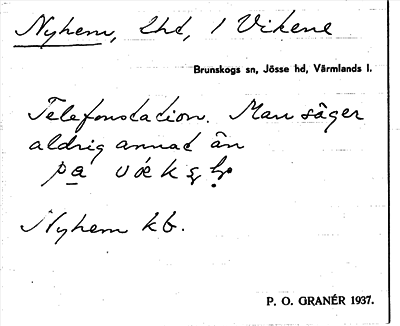 Nyhem, Lhd, 1 Vikene
Brunskogs sn, Jösse hd, Värmlands l.
Telefonstation. Man säger
aldrig annat än
pa
Nyhem kb.
P. O. GRANÉR 1937.